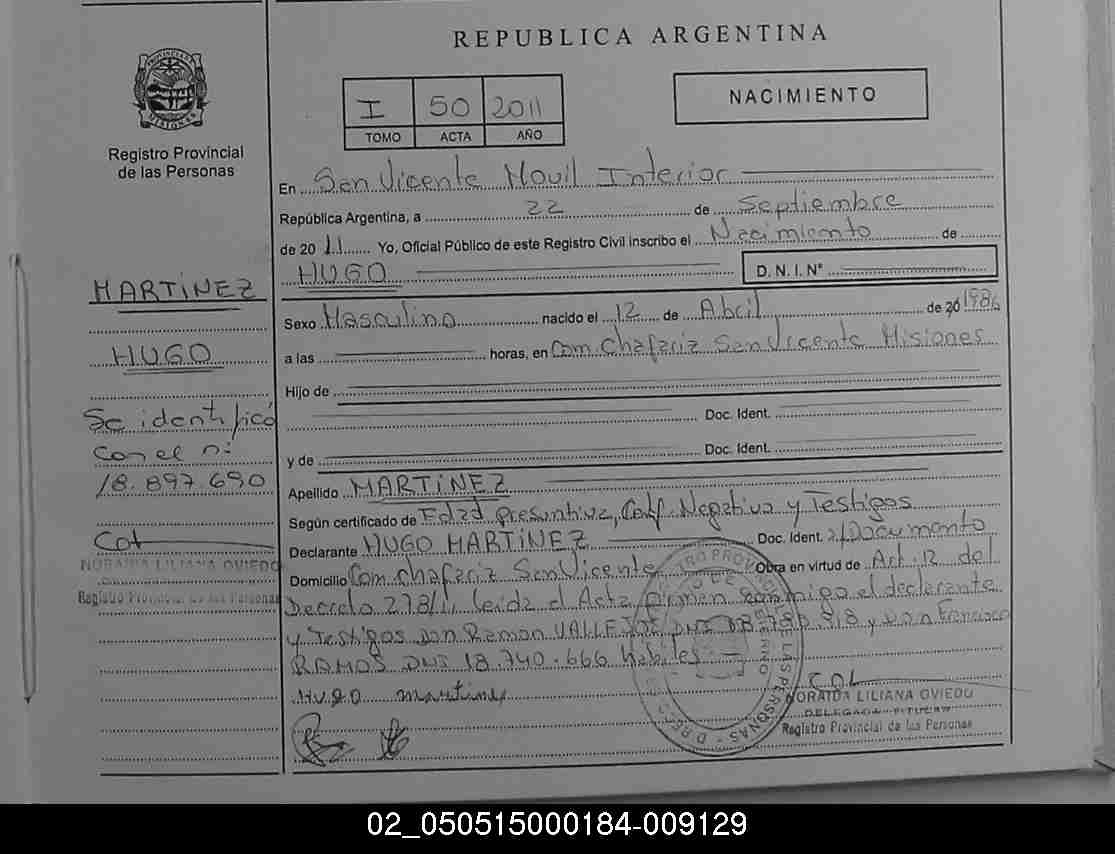 REPUBLICA ARGENTINA
PROVINCIA DE MISIONES
Registro Provincial
de las Personas
I 50 2011
TOMO ACTA AÑO
NACIMIENTO
En San Vicente Movil Interior
República Argentina, a 22 de Septiembre
de 20 11 Yo, Oficial Público de este Registro Civil inscribo el Nacimiento de
HUGO D. N. I. N°
Sexo Masculino nacido el 12 de Abril de 20 1986
a las horas, en Com. Chafariz San Vicente Misiones
Hijo de
Doc. Ident.
y de Doc. Ident.
Apellido MARTINEZ
Según certificado de Edad presuntiva, Conf. Negativa y Testigos
Declarante HUGO MARTINEZ Doc. Ident. s/Documento
Domicilio Com. chafariz San Vicente Obra en virtud de Art. 12 del
Decreto 278/11, leida el Acta firman conmigo el declarante
y Testigos Don Ramon VALLEJOS DNI y Don Francisco
RAMOS DNI 18.740.666 habiles.
Hugo martinez
NORAIDA LILIANA OVIEDO
DELEGADA TITULAR
Registro Provincial de las Personas
MARTINEZ
HUGO
Se identificó
con el n:
18.897.690
NORAIDA LILIANA OVIEDO
Registro Provincial de las Personas
02_050515000184-009129